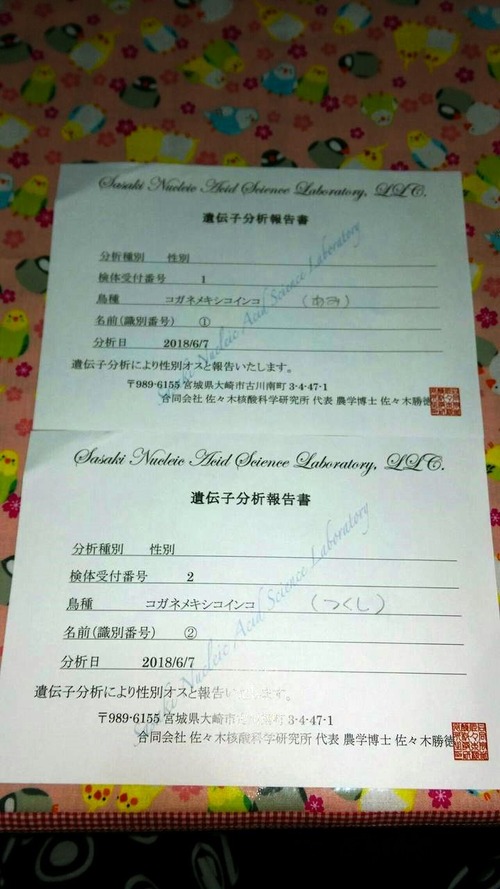 Sasaki Nucleic Acid Science Laboratory, LLC.
遺伝子分析報告書
分析種別 性別
検体受付番号 1
鳥種 コガネメキシコインコ
名前(識別番号) ①
分析日 2018/6/7
遺伝子分析により性別オスと報告いたします。
〒989-6155 宮城県大崎市古川南町 3-4-47-1
合同会社 佐々木核酸科学研究所 代表 農学博士 佐々木勝徳
Sasaki Nucleic Acid Science Laboratory
Sasaki Nucleic Acid Science Laboratory, LLC.
遺伝子分析報告書
分析種別 性別
検体受付番号 2
鳥種 コガネメキシコインコ (つくし)
名前(識別番号) ②
分析日 2018/6/7
遺伝子分析により性別オスと報告いたします。
〒989-6155 宮城県大崎市 町 3-4-47-1
合同会社 佐々木核酸科学研究所 代表 農学博士 佐々木勝徳
Sasaki Nucleic Acid Science Laboratory